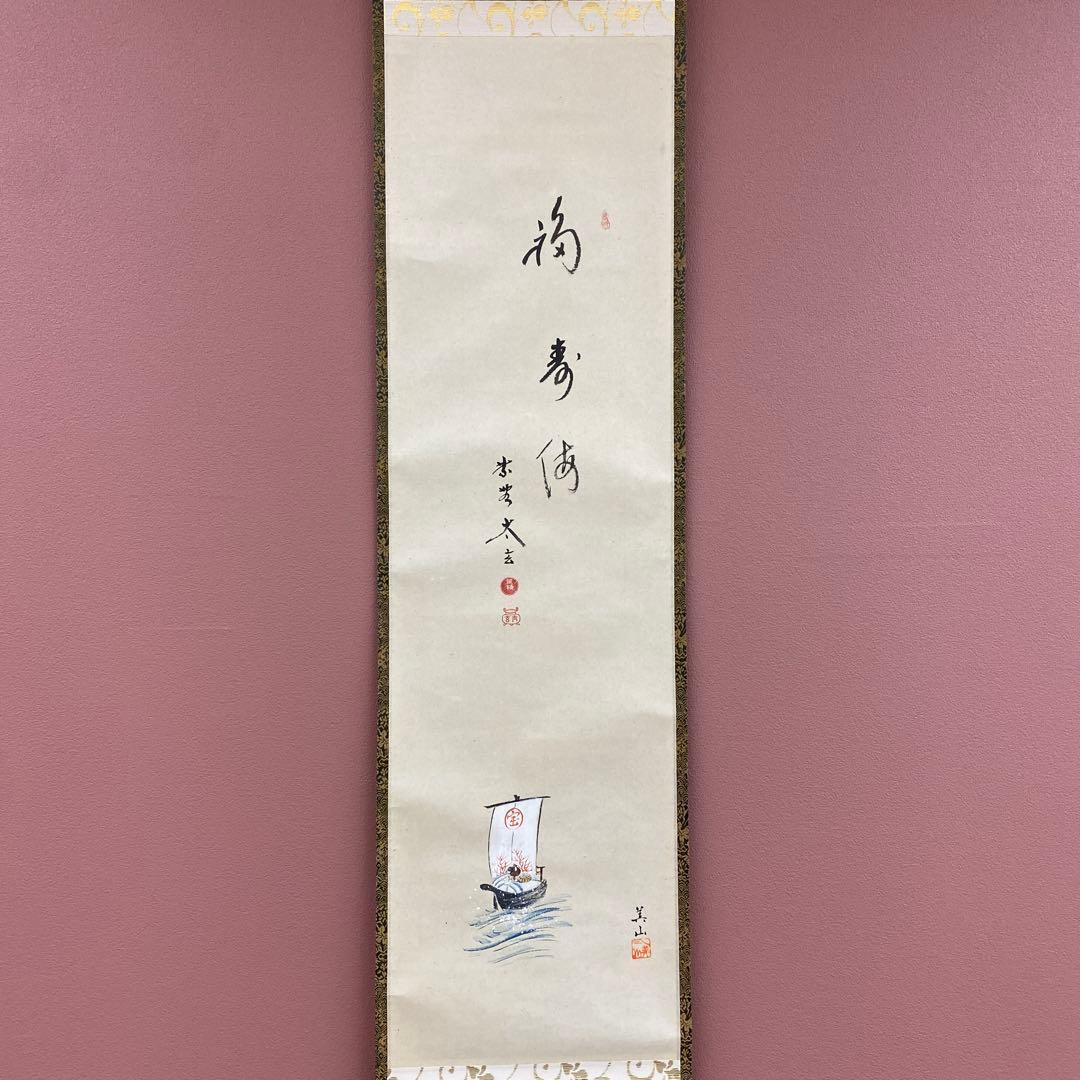 福寿海
紫野 太玄
宝
美山